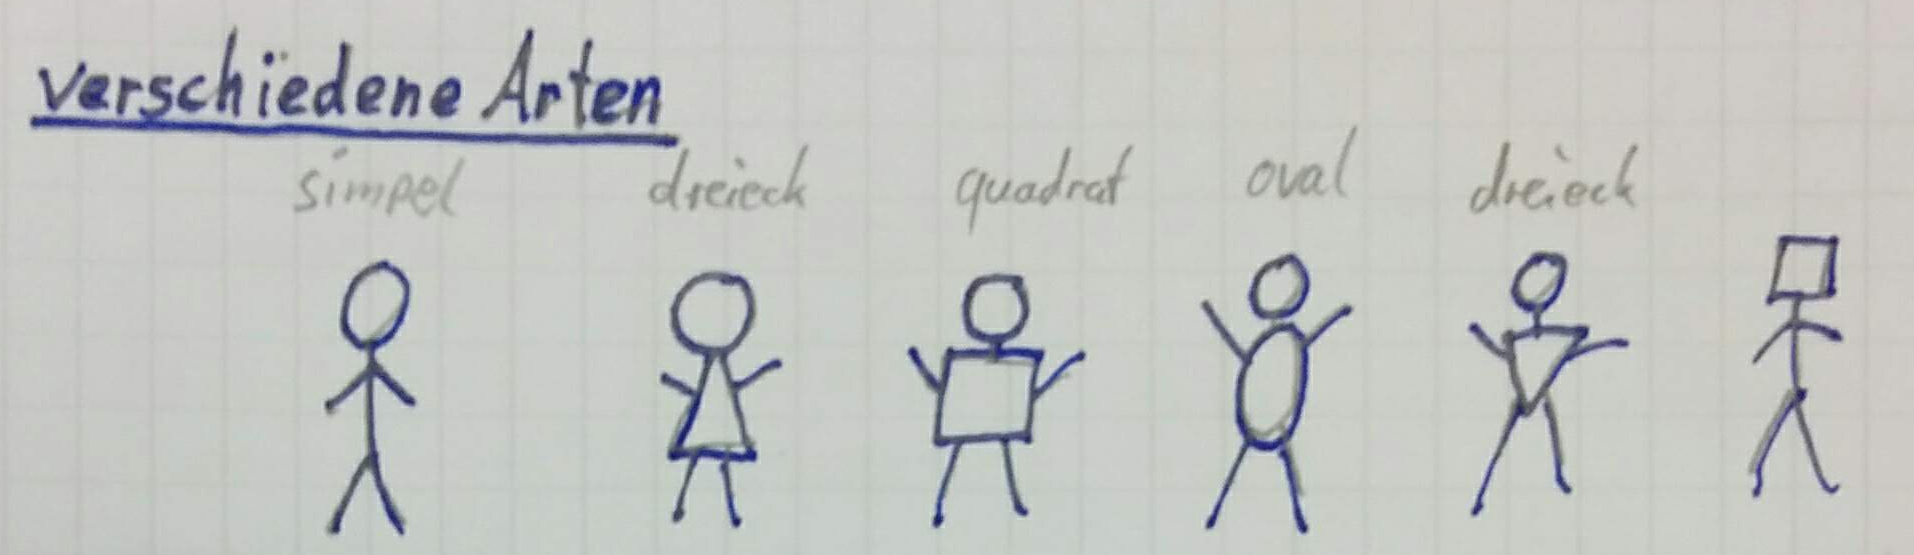 verschiedene Arten
simpel dreieck quadrat oval dreieck